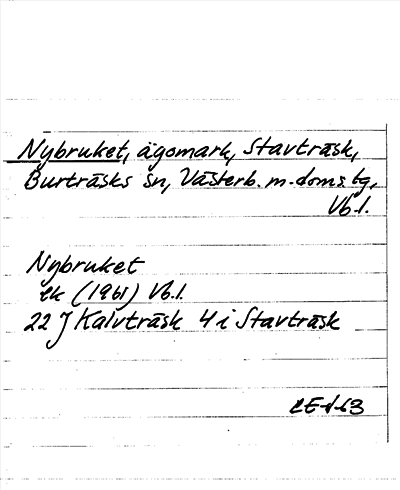 Nybruket, ägomark, Stavträsk,
Burträsks sn, Västerb. m. doms. tg,
Vb.l.
Nybruket
ek (1961) Vb.l.
22 J Kalvträsk 4 i Stavträsk